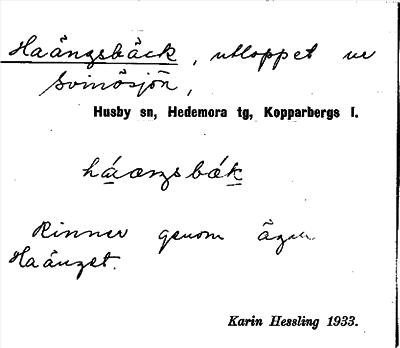 Haängsbäck, utloppet ur
Svinösjön,
Husby sn, Hedemora tg, Kopparbergs l.
háængsbæ̀k
Rinner genom ägan
Haänget.
Karin Hessling 1933.